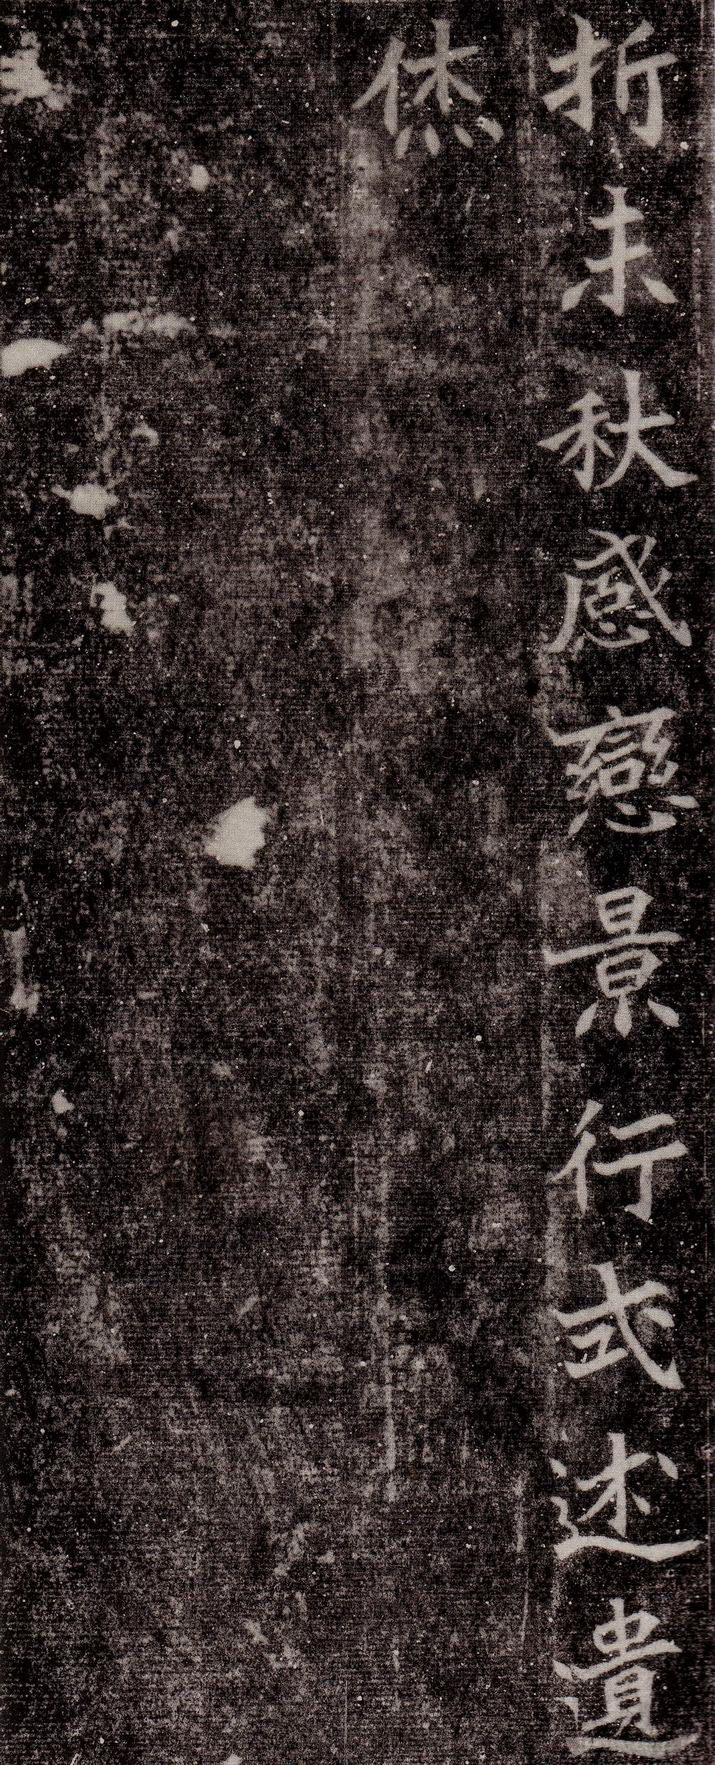 折未秋感戀景行式述遺
烋